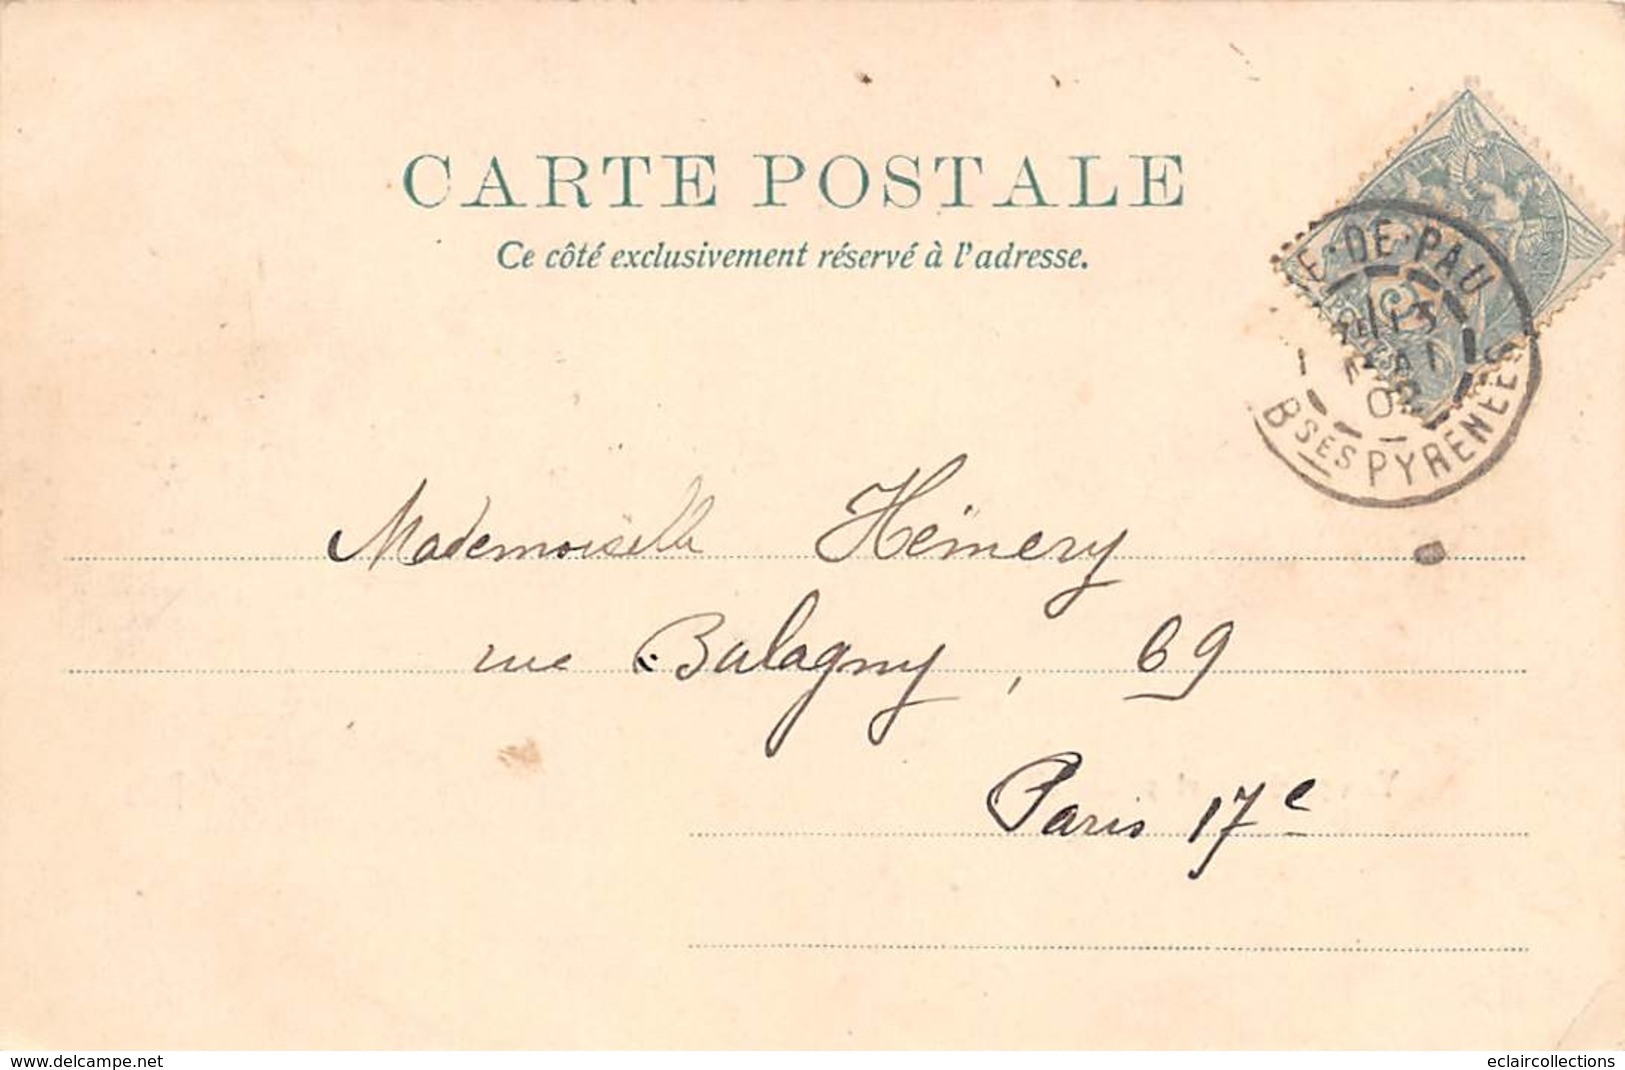 CARTE POSTALE
Ce côté exclusivement réservé à l'adresse.
E-DE-PAU
BSES PYRENEES
Mademoiselle Hémery
rue Balagny, 69
Paris 17e
www.delcampe.net
eclaircollections